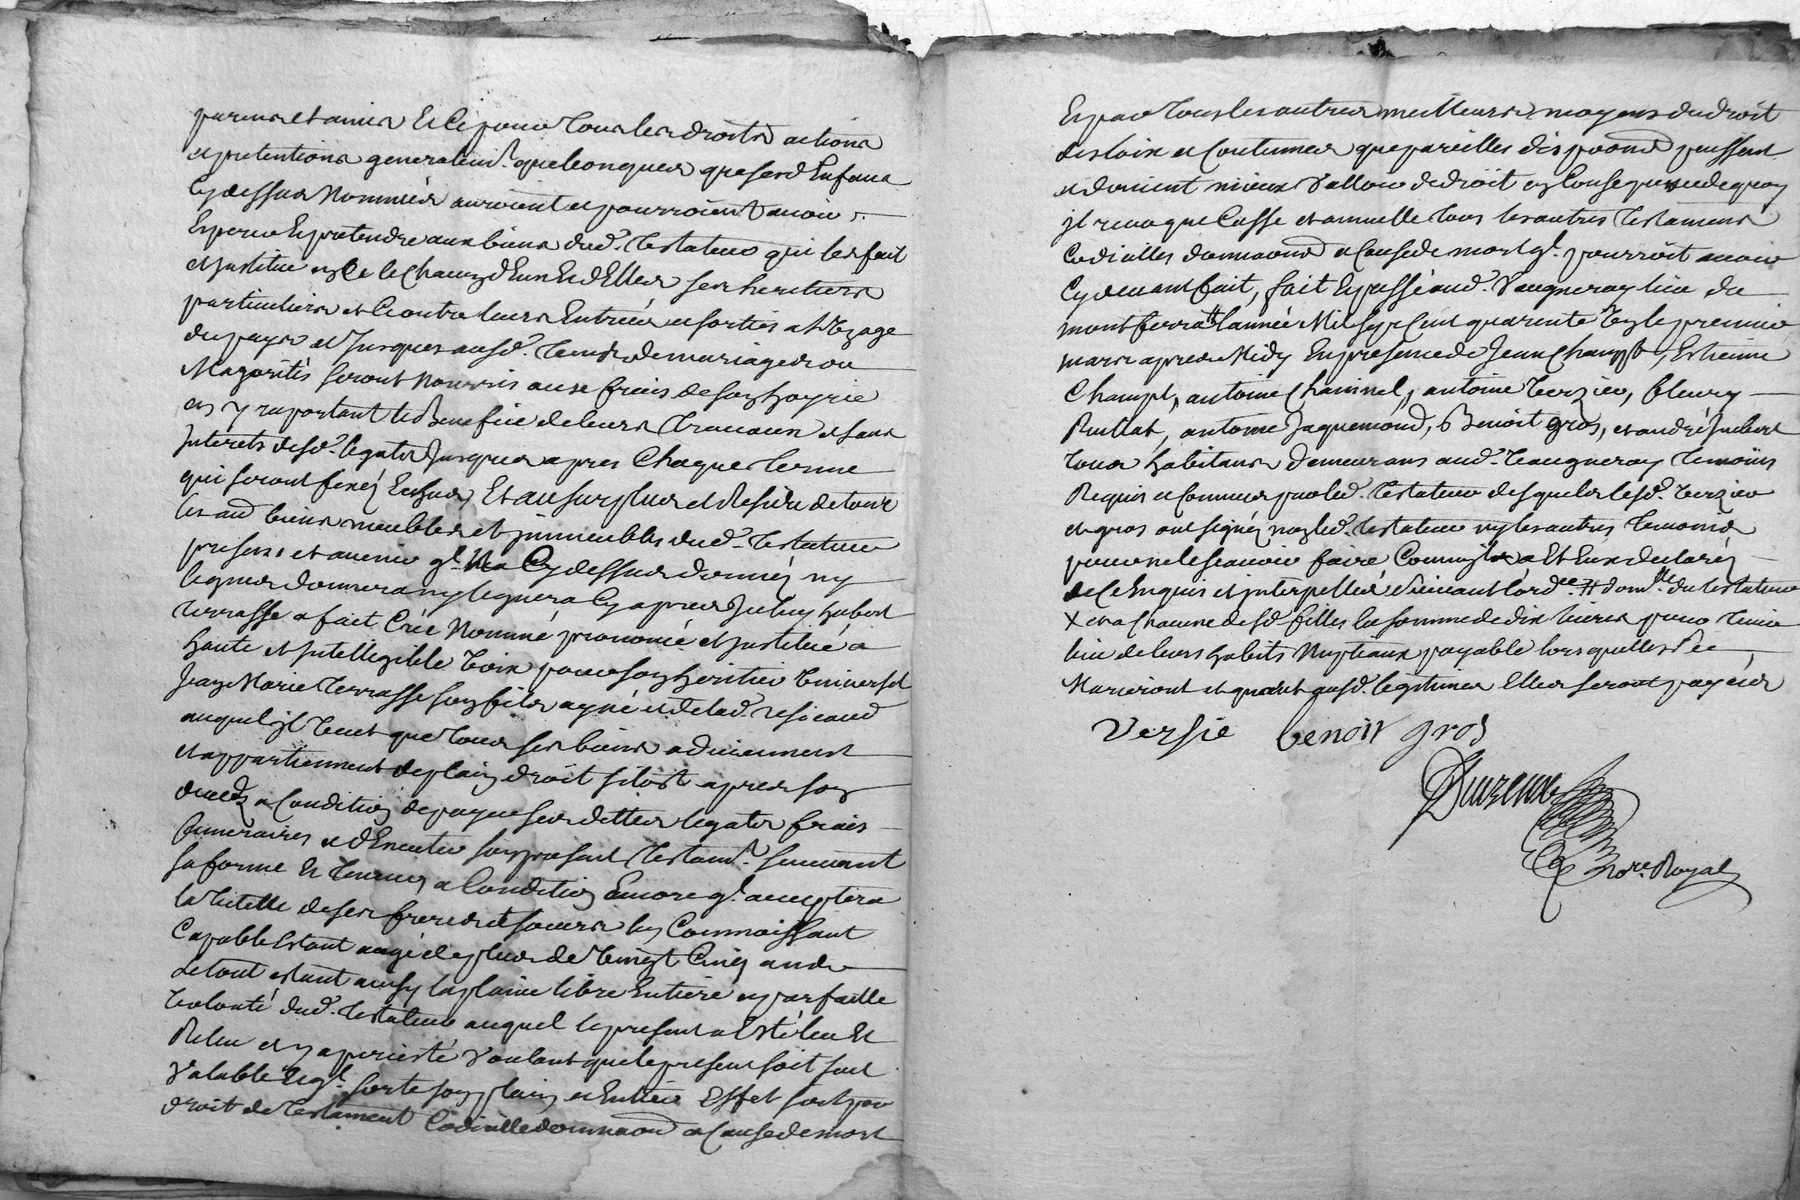 parens et amis Et ce pour tous les droits actions
et pretentions generalem.t quelconques que sesd Enfans
Cy dessus Nommés auroient et pourroient avoir
Esperer Et pretendre aux biens dud. testateur qui les fait
et institue en ce le chacun d'Eux Et d'Elles ses heritiers
particuliers et Contre leurs Entrées et sorties
du pays et Jusques ausd. tems de mariages ou
Majorités seront nourris aux frais de son hoyrie
en y raportant le Benefice de leurs travaux et sans
Interets desd. legats Jusques apres Chaque terme
qui seront fixés Et au surplus et Residu de tous
les aud biens meubles et immeubles dud. testateur
presens et avenir q.l Na Cy dessus donnés ny
legués donnera ny leguera Cy apres hubert
terrasse a fait Créé Nommé prononcé et institué a
haute et Intelligible voix pour son heritier Universel
Jean Marie terrasse son fils ayné et de lad.
auquel il veut que tous ses biens adviennent
et appartiennent de plain droit sitost apres son
deceds a Condition de payer ses dettes legats frais
funeraires et d'Executer son present testam.t suivant
sa forme Et teneur a Condition Encore q.l acceptera
la tutelle de ses freres et soeurs les Connoissant
Capable Estant aagé de plus de vingt Cinq ans
Le tout estant ainsy la plaine libre Entiere et parfaitte
volonté dud. testateur auquel le present a Esté leu Et
Releu et y a persisté voulant que le present soit
valable Et q.l sorte son plain et Entier Effet soit par
droit de testament Codicille donnaon a Cause de mort
Et par tous les autres meilleurs moyens du droit
des loix et Coutumes que pareilles dispoons puissent
et doivent mieux valloir de droit en Consequence de quoy
il revoque Casse et annulle tous les autres testaments
Codicilles donnaons a Cause de mort q.l pourroit avoir
Cy devant fait, fait Et passé aud. Vaugneray lieu du
montferrat l'année Mil sept Cent quarente le premier
mars apres Midy En presence de Jean Champt, Estienne
Champt, antoine Chaninel, antoine Verzier, fleury
Rullat, antoine Jaquemond, Benoit gros, et andré Jmbert
tous habitans demeurans aud. Vaugneray temoins
Requis et Connus par led. testateur desquels lesd. Verzier
et gros ont signés non led. testateur ny les autres temoins
pour ne le scavoir faire Comme Et Eux declarés
de Ce Enquis et interpellés suivant lord.ce # dom.lle du testateur
X et a Chacune desd filles la somme de dix livres pour tenir
lieu de leurs habits Nuptiaux payable lors quelles se
Marieront et quant ausd. legitimes Elles seront payées
Versie benoit gros
Not.re Royal